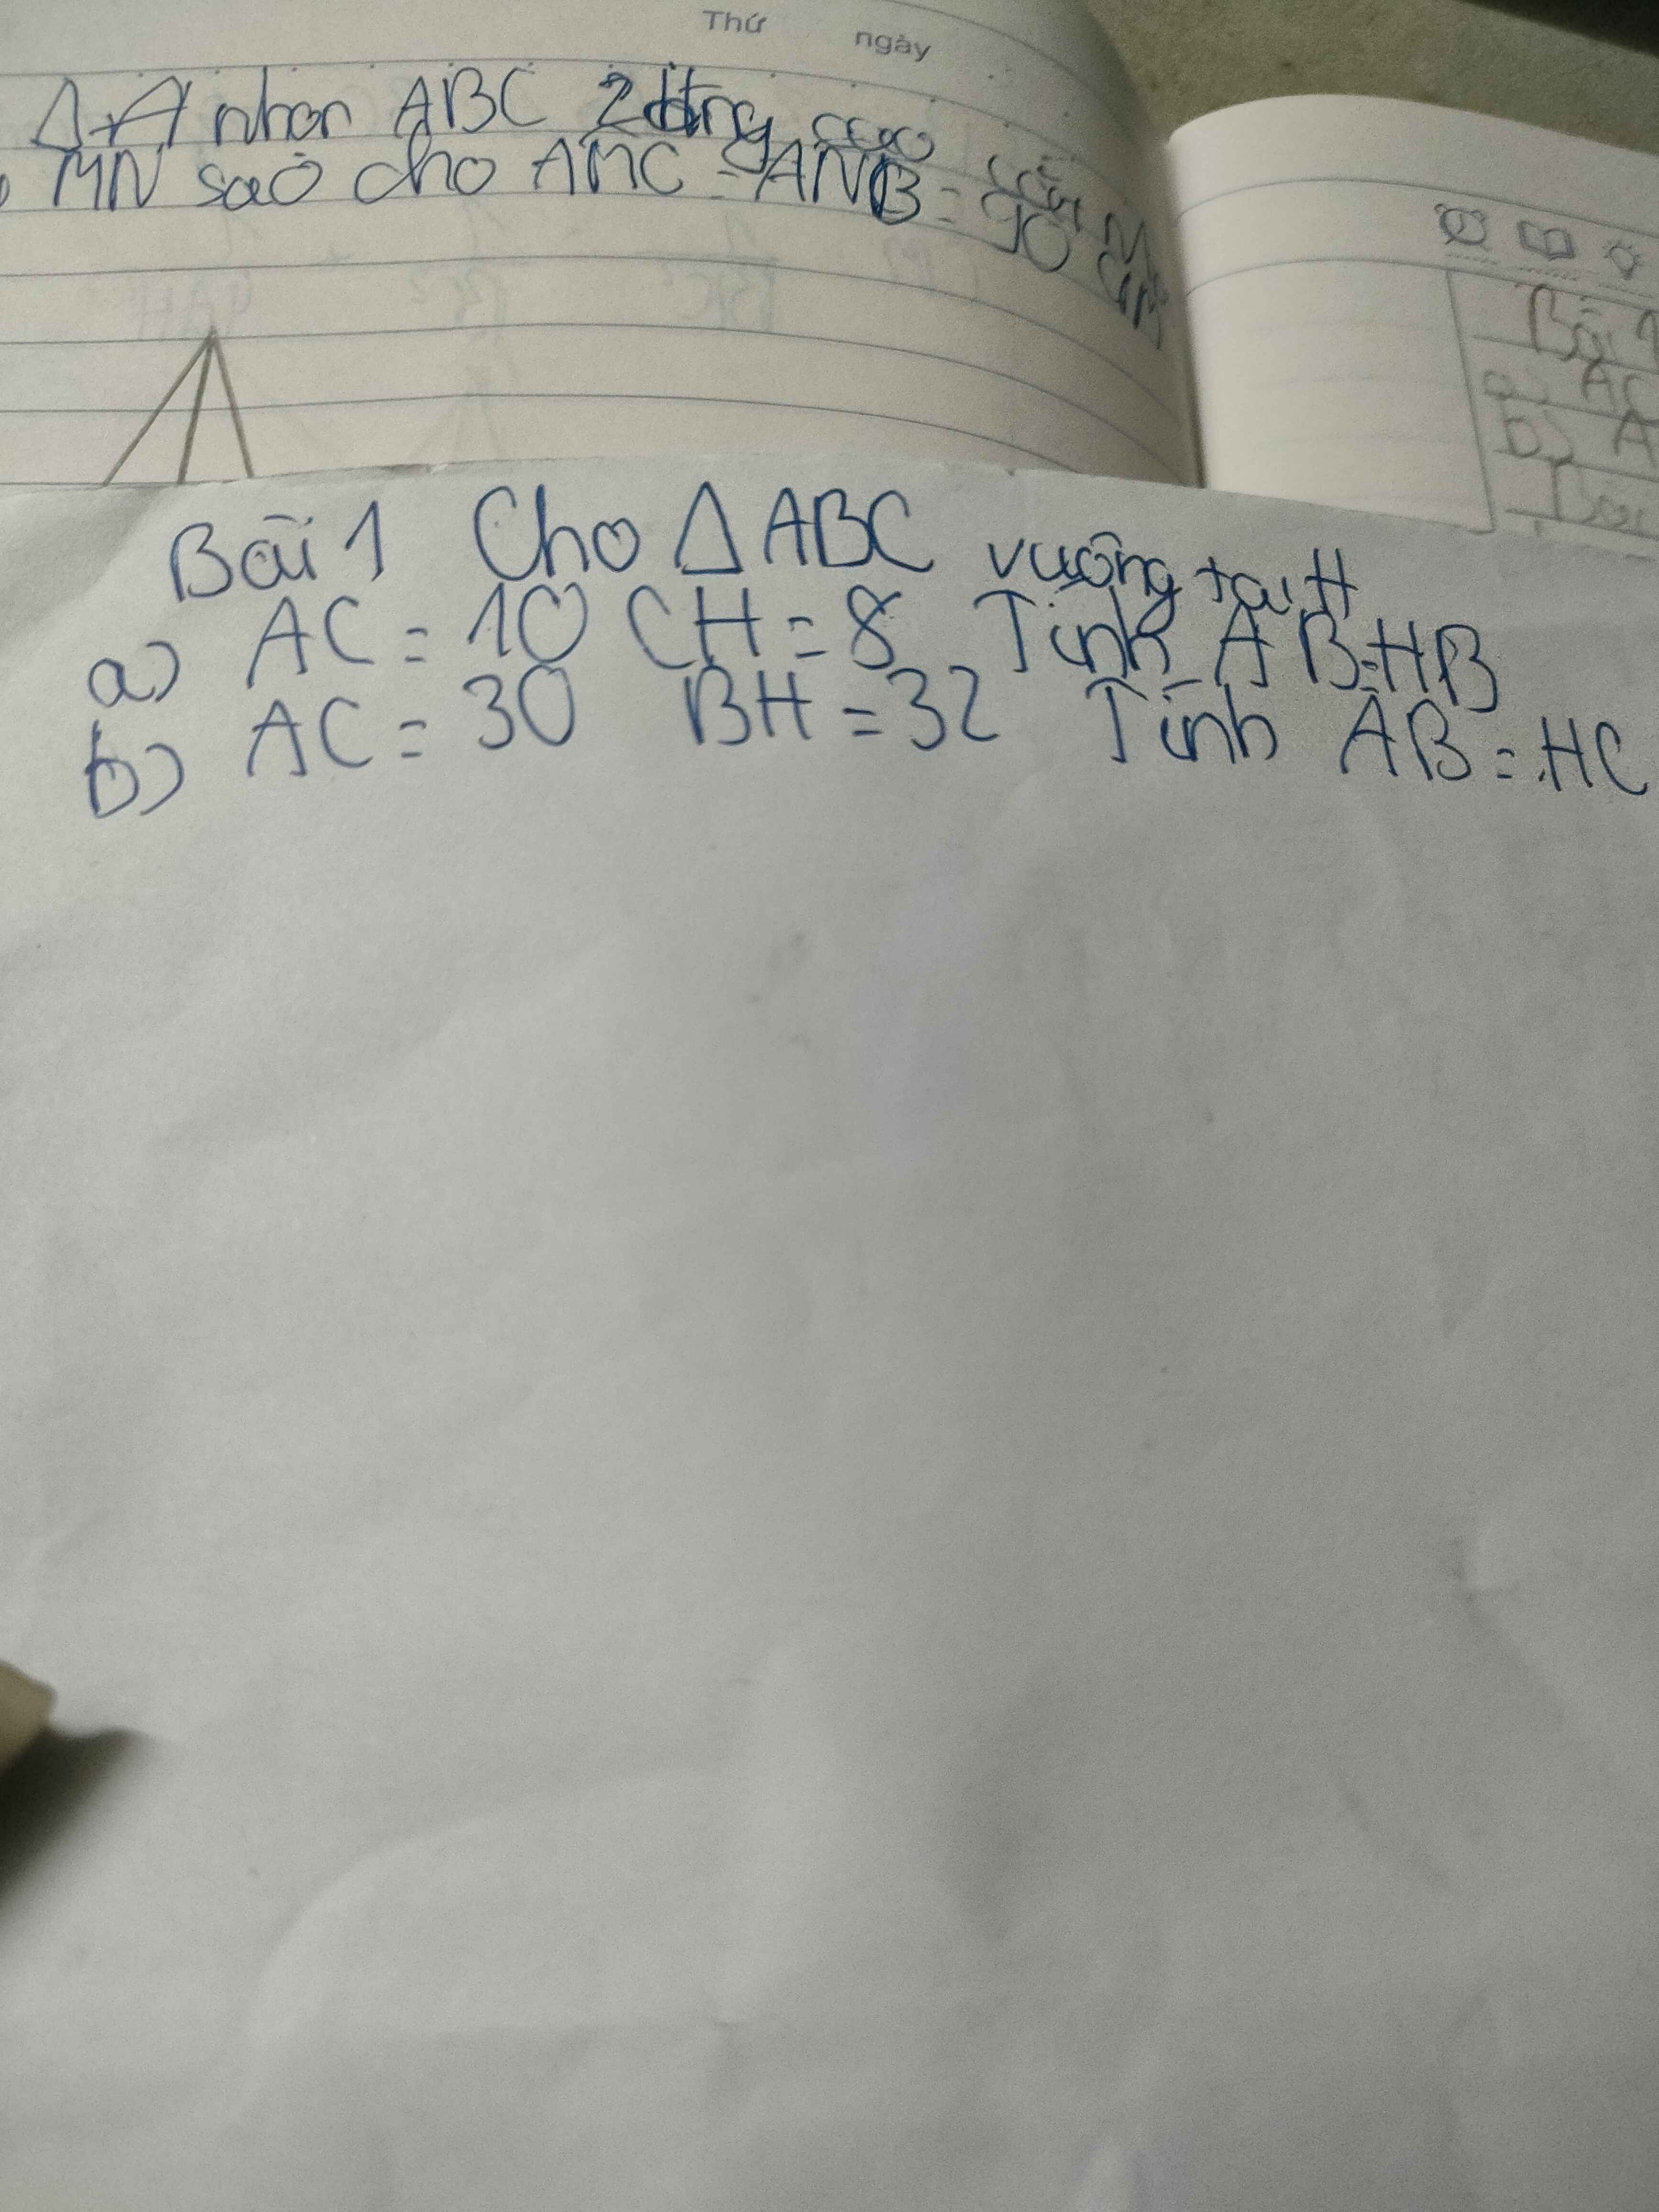 Thứ ngày
Δ A nhọn ABC 2 đường cao
MN sao cho AMC = ANB = 90 CM
Bài 1
a) AC
b) A
Bài
Bài 1 Cho Δ ABC vuông tại H
a) AC = 10 CH = 8 Tính AB = HB
b) AC = 30 BH = 32 Tính AB = HC